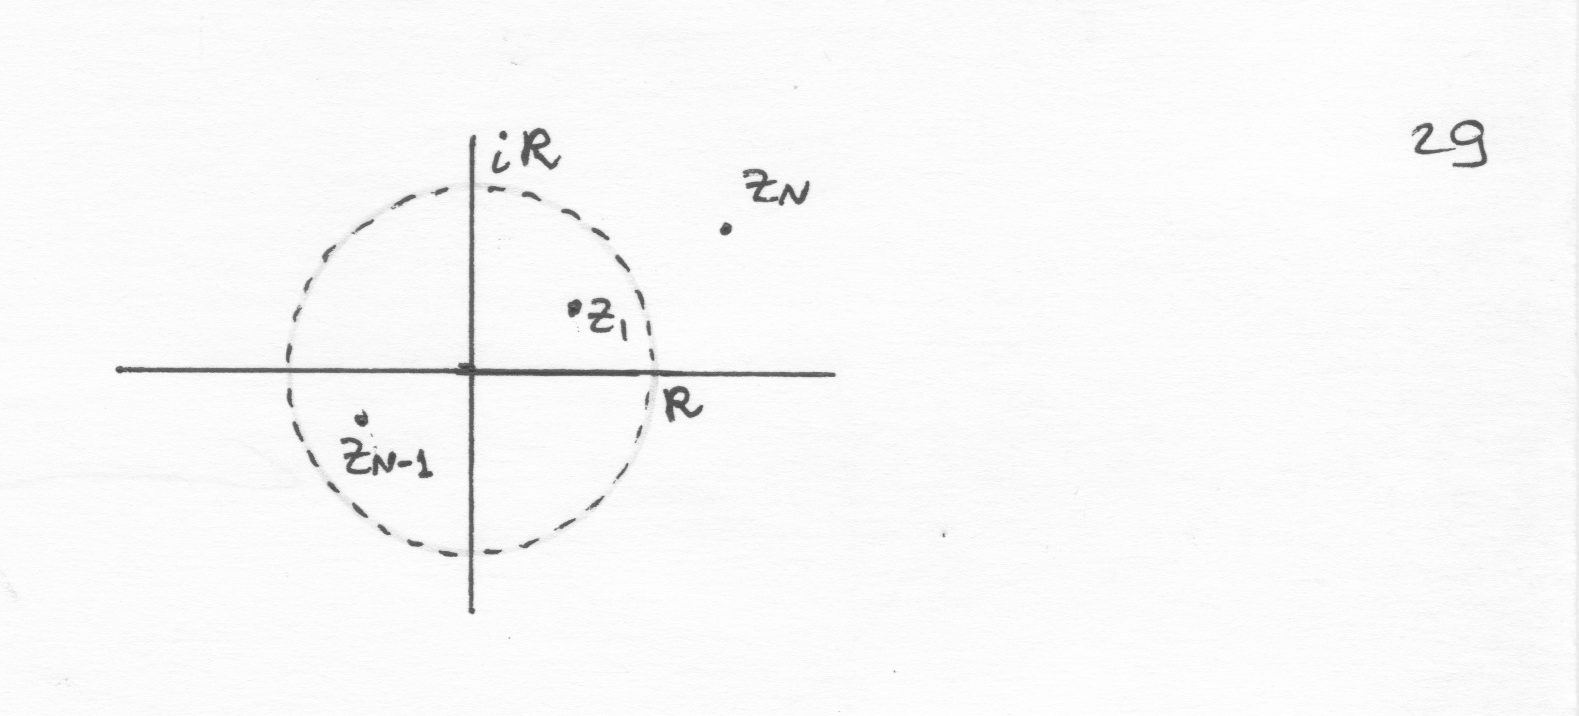 29
iR
zN
z1
R
zN-1